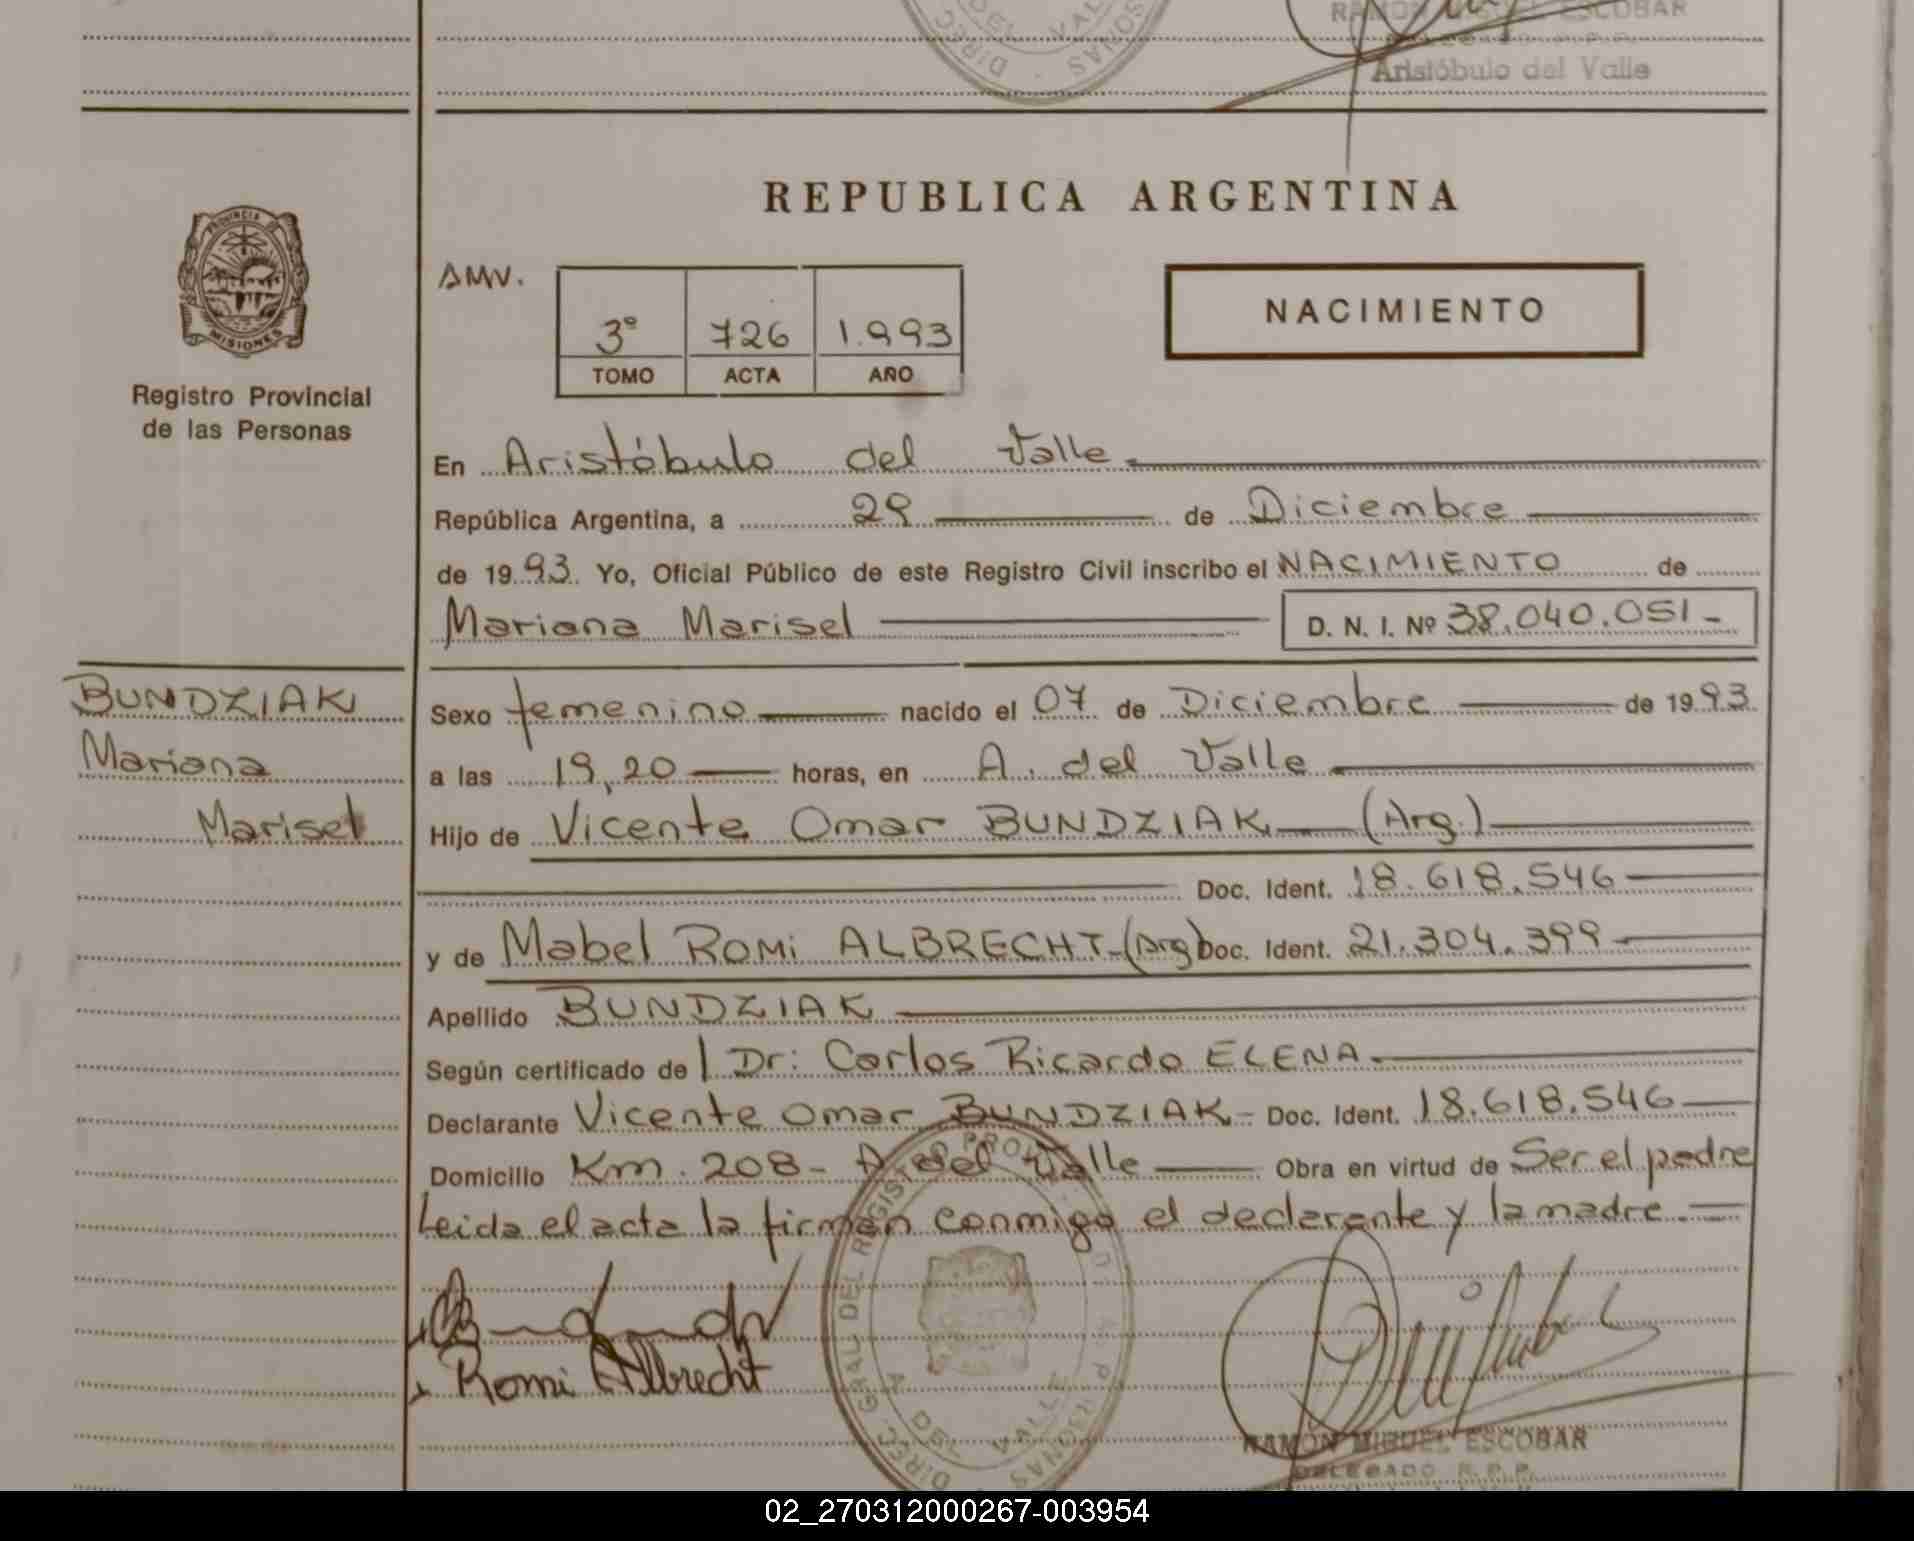 RAMON MIGUEL ESCOBAR
Aristóbulo del Valle
REPUBLICA ARGENTINA
PROVINCIA DE
MISIONES
Registro Provincial
de las Personas
AMV.
3º 726 1.993
TOMO ACTA AÑO
NACIMIENTO
En Aristóbulo del Valle
República Argentina, a 29 de Diciembre
de 1993. Yo, Oficial Público de este Registro Civil inscribo el NACIMIENTO de
Mariana Marisel D. N. I. Nº 38.040.051-
BUNDZIAK
Mariana
Marisel
Sexo femenino nacido el 07 de Diciembre de 1993
a las 19,20 horas, en A. del Valle
Hijo de Vicente Omar BUNDZIAK (Arg.)
Doc. Ident. 18.618.546
y de Mabel ROMi ALBRECHT-(Arg) Doc. Ident. 21.304.399
Apellido BUNDZIAK
Según certificado de Dr: Carlos Ricardo ELENA
Declarante Vicente Omar BUNDZIAK- Doc. Ident. 18.618.546
Domicilio Km. 208- A del Valle Obra en virtud de Ser el padre
Leida el acta la firman conmigo el declarante y la madre.
Romi Albrecht
DIREC. GRAL. DEL REGISTRO PROV.
A. DEL VALLE
RAMÓN MIGUEL ESCOBAR
DELEGADO R.P.P.
02_270312000267-003954